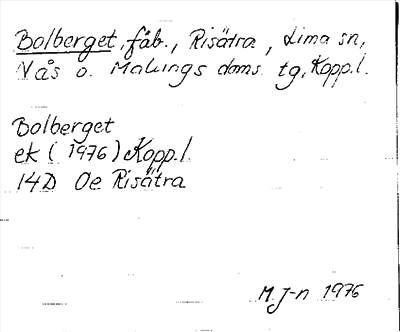 Bolberget, fäb., Risätra, Lima sn,
Nås o. Malungs doms. tg, Kopp. l.
Bolberget
ek (1976) Kopp. l
14D 0e Risätra
M. J-n 1976